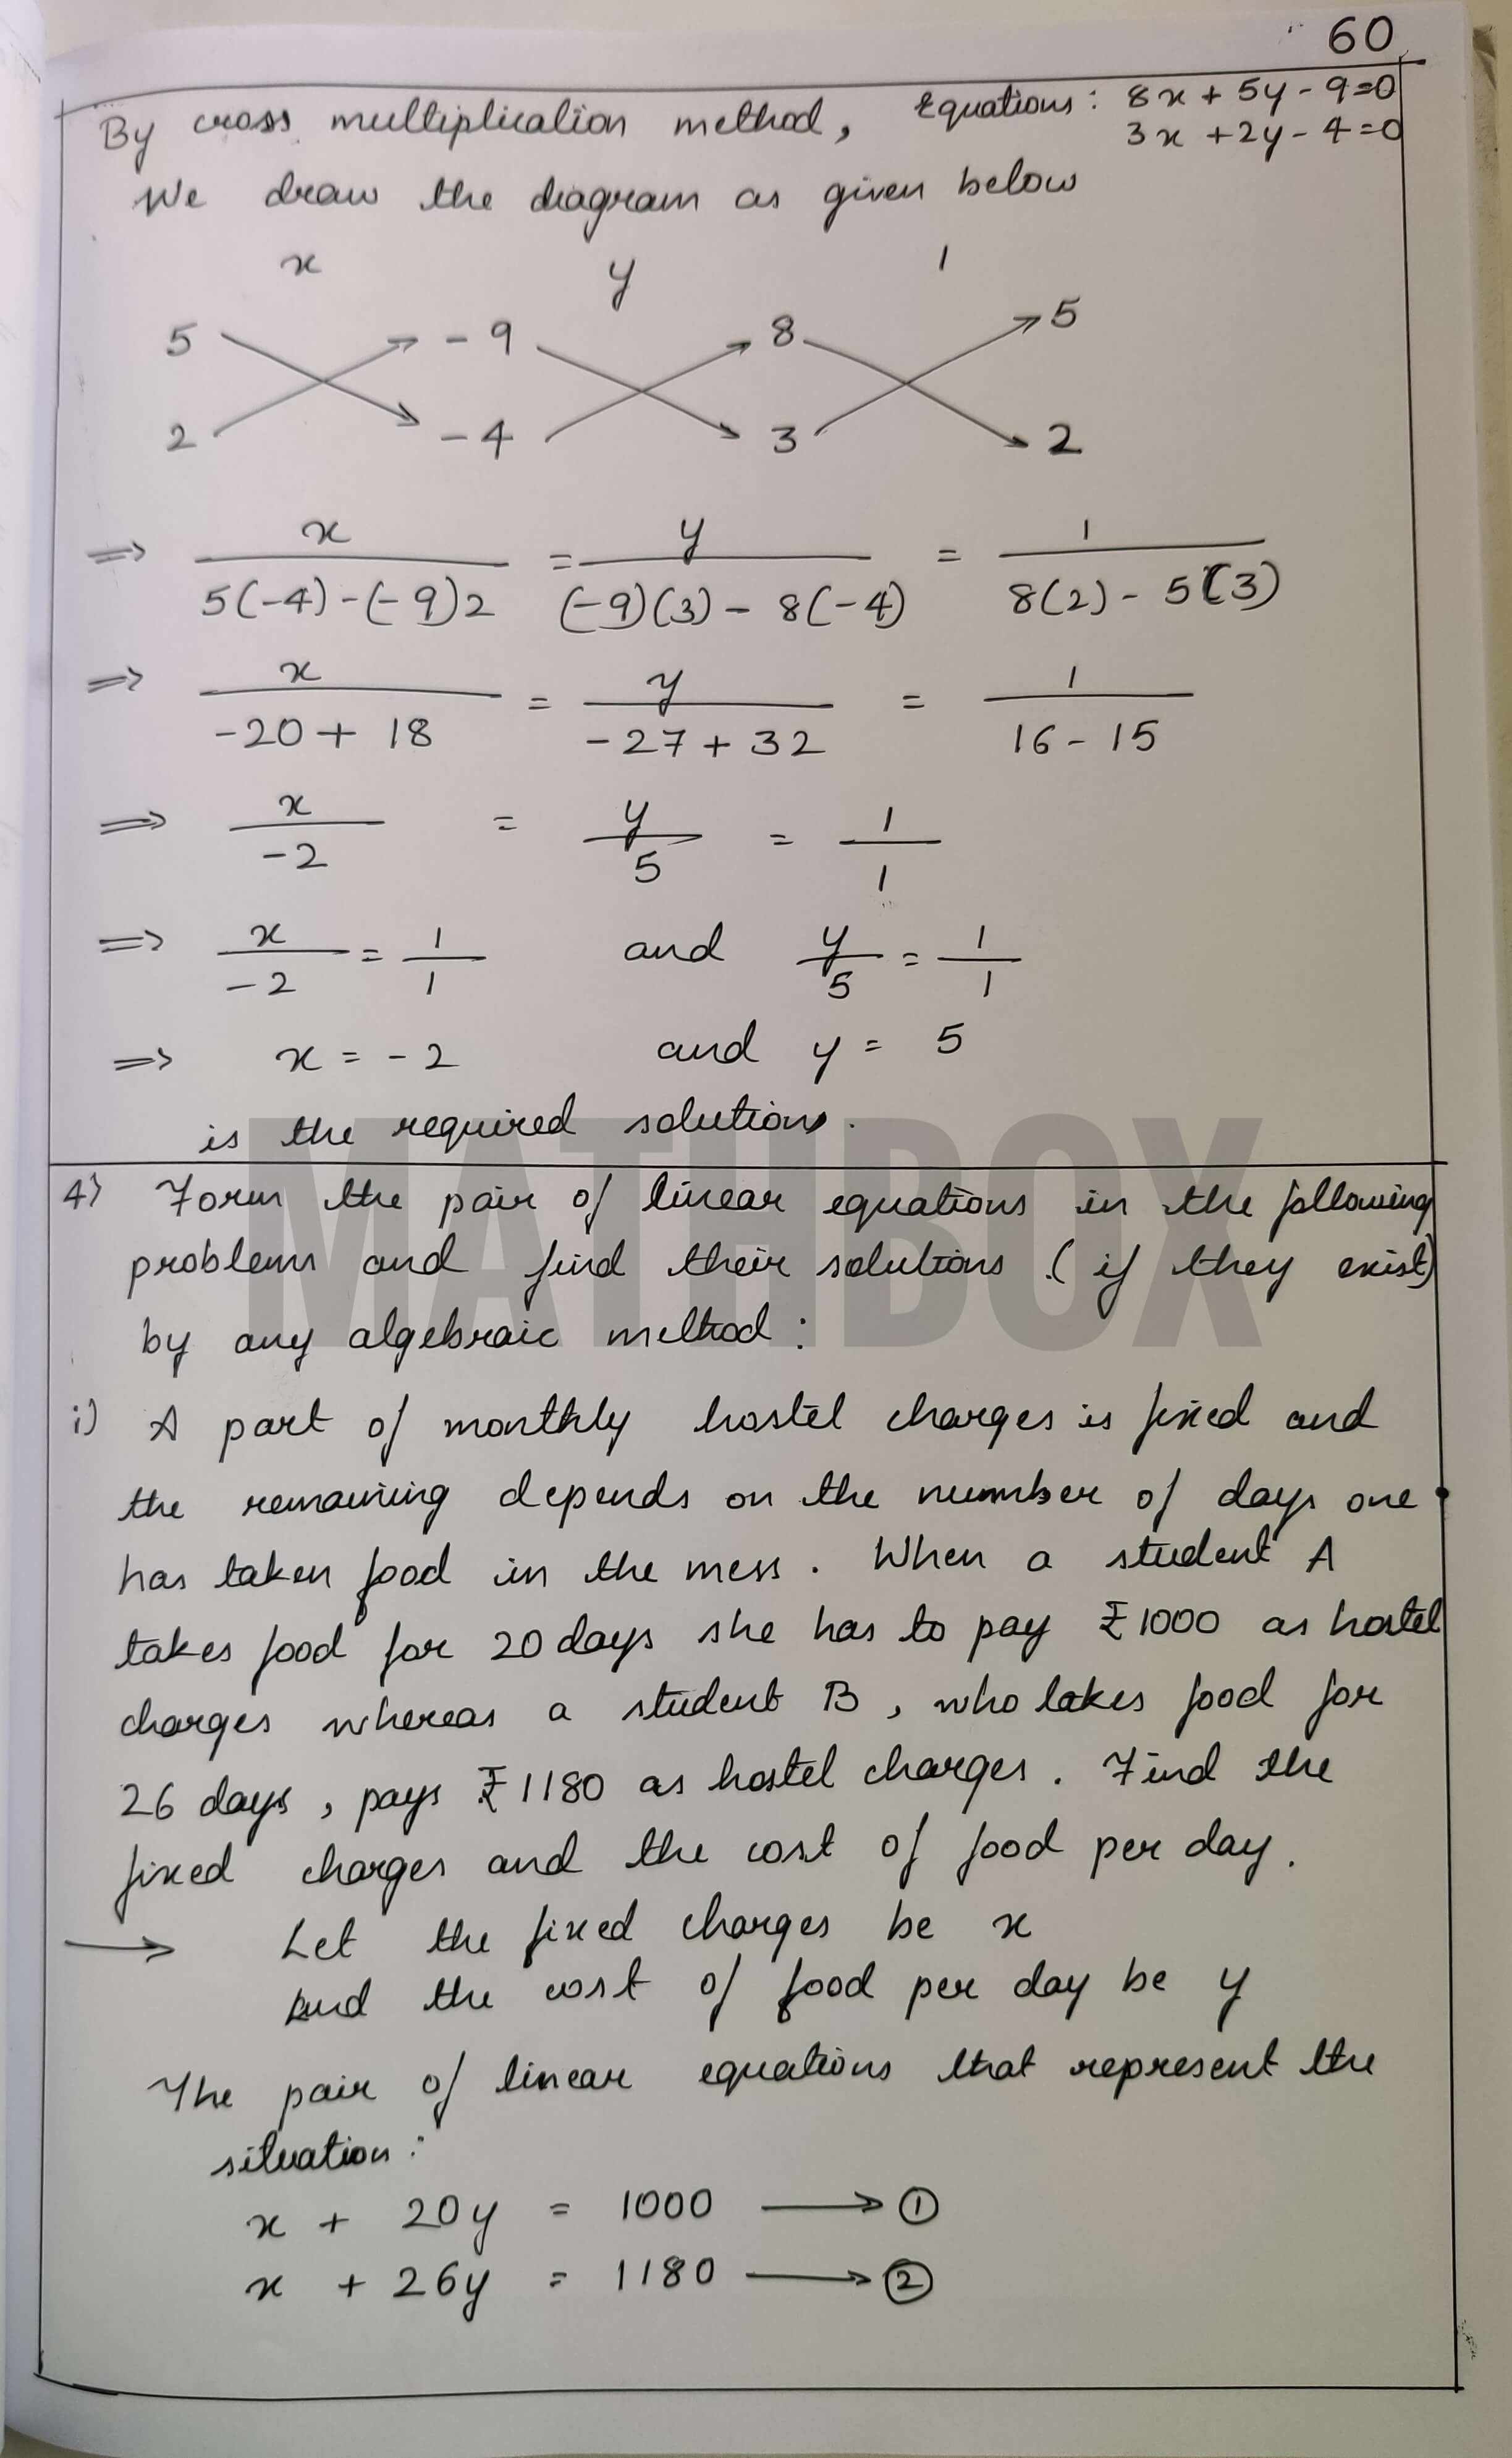 60
By cross multiplication method, Equations: 8x + 5y - 9=0
3x + 2y - 4=0
We draw the diagram as given below
x y 1
5 - 9 8 5
2 - 4 3 2
⇒ x / 5(-4) - (-9)2 = y / (-9)(3) - 8(-4) = 1 / 8(2) - 5(3)
⇒ x / -20 + 18 = y / -27 + 32 = 1 / 16 - 15
⇒ x / -2 = y / 5 = 1 / 1
⇒ x / -2 = 1 / 1 and y / 5 = 1 / 1
⇒ x = - 2 and y = 5
is the required solutions.
MATHBOX
4) Form the pair of linear equations in the following
problems and find their solutions (if they exist)
by any algebraic method:
i) A part of monthly hostel charges is fixed and
the remaining depends on the number of days one
has taken food in the mess. When a student A
takes food for 20 days she has to pay ₹1000 as hostel
charges whereas a student B, who takes food for
26 days, pays ₹1180 as hostel charges. Find the
fixed charges and the cost of food per day.
→ Let the fixed charges be x
And the cost of food per day be y
The pair of linear equations that represent the
situation:
x + 20y = 1000 → ①
x + 26y = 1180 → ②